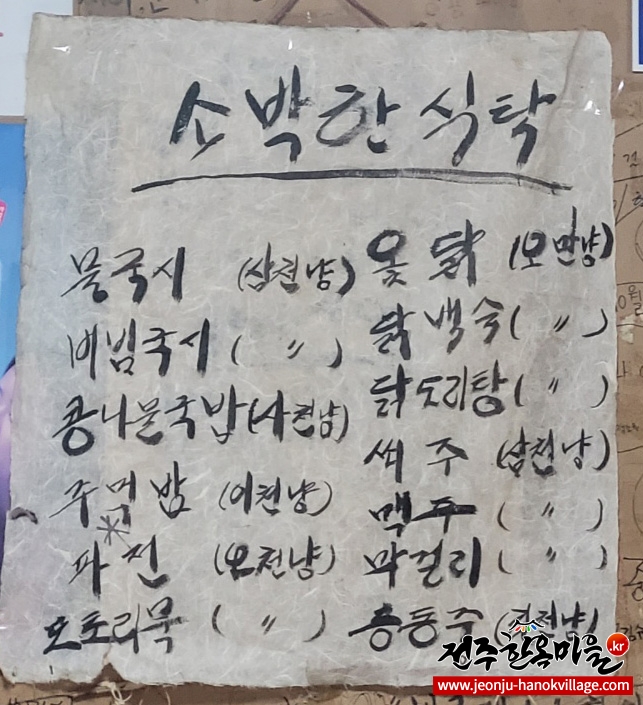 소박한 식탁
물국시 (삼천냥)
비빔국시 ( 〃 )
콩나물국밥 (사천냥)
주먹밥 (이천냥)
파전 (오천냥)
도토리묵 ( 〃 )
옻닭 (오만냥)
닭백숙 ( 〃 )
닭도리탕 ( 〃 )
쐬주 (삼천냥)
맥주 ( 〃 )
막걸리 ( 〃 )
동동주
전주한옥마을.kr
www.jeonju-hanokvillage.com